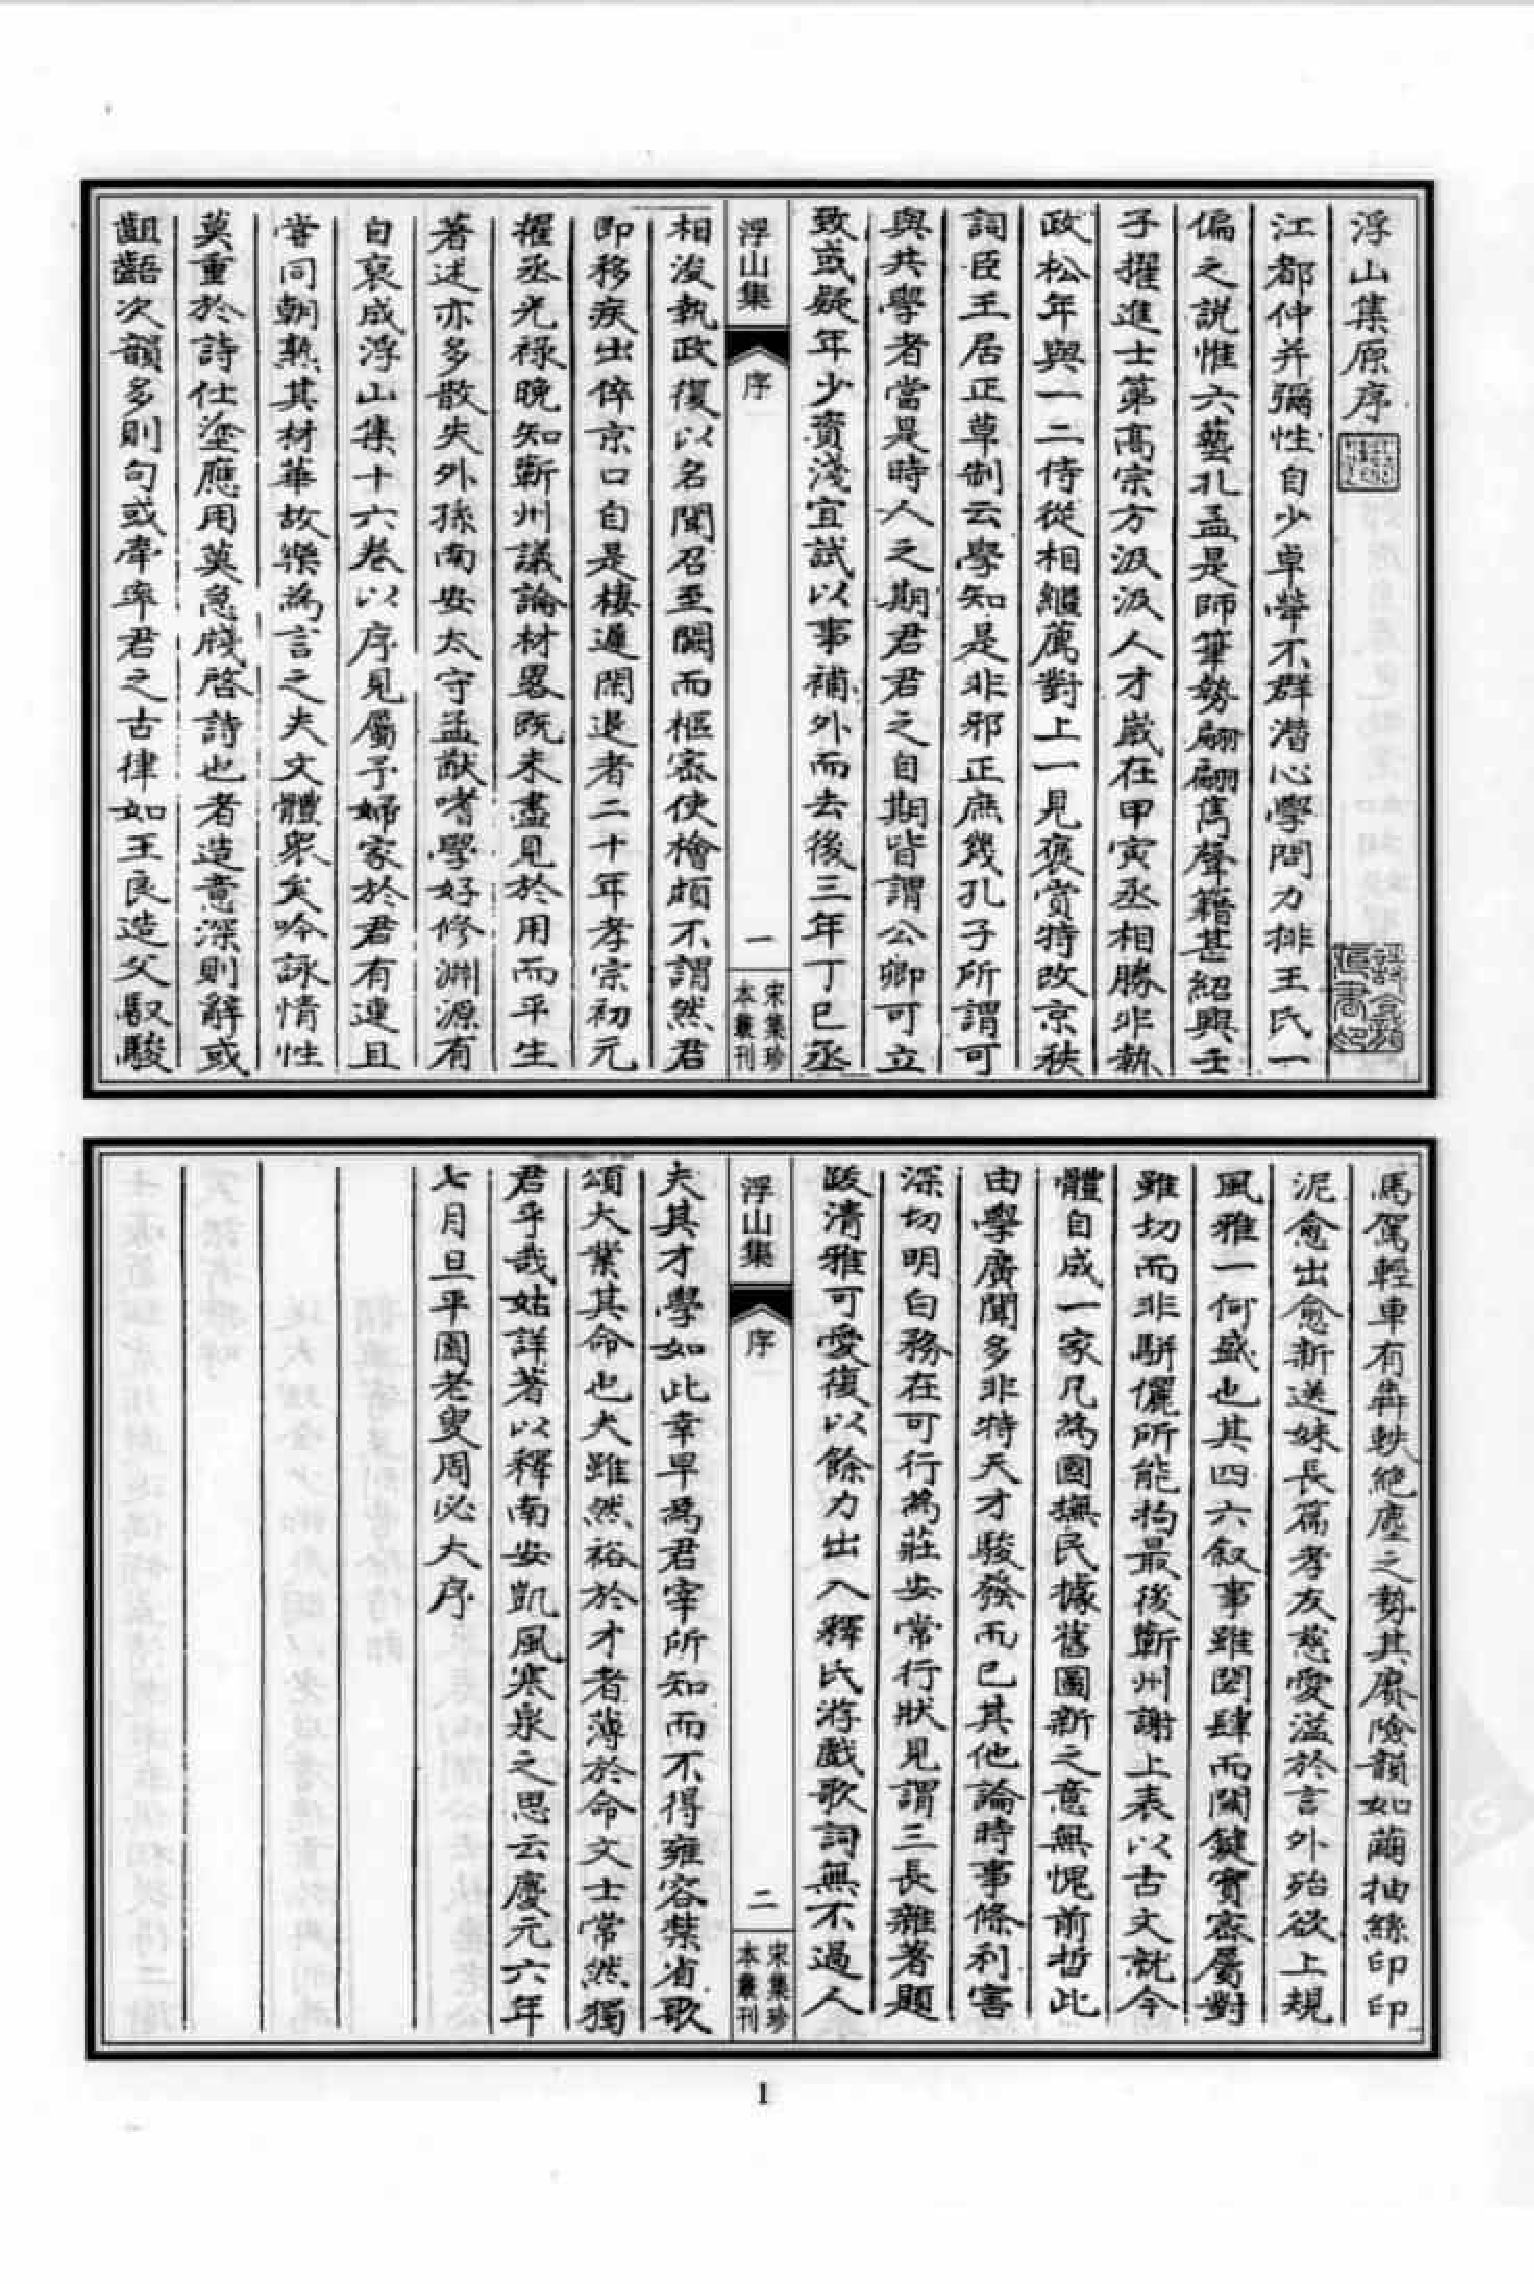 浮山集原序
江都仲并彌性自少卓犖不群潛心學問力排王氏一
偏之說惟六藝孔孟是師筆勢翩翩雋聲籍甚紹興壬
子擢進士第高宗方汲汲人才歲在甲寅丞相勝非執
政松年與一二侍從相繼薦對上一見褒賞特改京秩
詞臣王居正草制云學知是非邪正庶幾孔子所謂可
與共學者當是時人之期君君之自期皆謂公卿可立
致或疑年少資淺宜試以事補外而去後三年丁巳丞
浮山集
序
一
宋集珍
本叢刊
相浚執政復以名聞召至闕而樞密使檜頗不謂然君
即移疾出倅京口自是棲遲閑退者二十年孝宗初元
擢丞光祿晚知蘄州議論材畧既未盡見於用而平生
著述亦多散失外孫南安太守孟猷嗜學好修淵源有
自裒成浮山集十六卷以序見屬予婦家於君有連且
嘗同朝熟其材華故樂為言之夫文體衆矣吟詠情性
莫重於詩仕塗應用莫急牋啓詩也者造意深則辭或
齟齬次韻多則句或牽率君之古律如王良造父馭駿
馬駕輕車有犇軼絕塵之勢其賡險韻如繭抽絲印印
泥愈出愈新送妹長篇孝友慈愛溢於言外殆欲上規
風雅一何盛也其四六叙事雖閎肆而關鍵實密屬對
雖切而非駢儷所能拘最後蘄州謝上表以古文就今
體自成一家凡為國撫民據舊圖新之意無愧前哲此
由學廣聞多非特天才駿發而已其他論時事條利害
深切明白務在可行為莊安常行狀見謂三長雜著題
跋清雅可愛復以餘力出入釋氏游戲歌詞無不過人
浮山集
序
二
宋集珍
本叢刊
夫其才學如此幸早為君宰所知而不得雍容禁省歌
頌大業其命也夫雖然裕於才者薄於命文士常然獨
君乎哉姑詳著以釋南安凱風寒泉之思云慶元六年
七月旦平園老叟周必大序
1